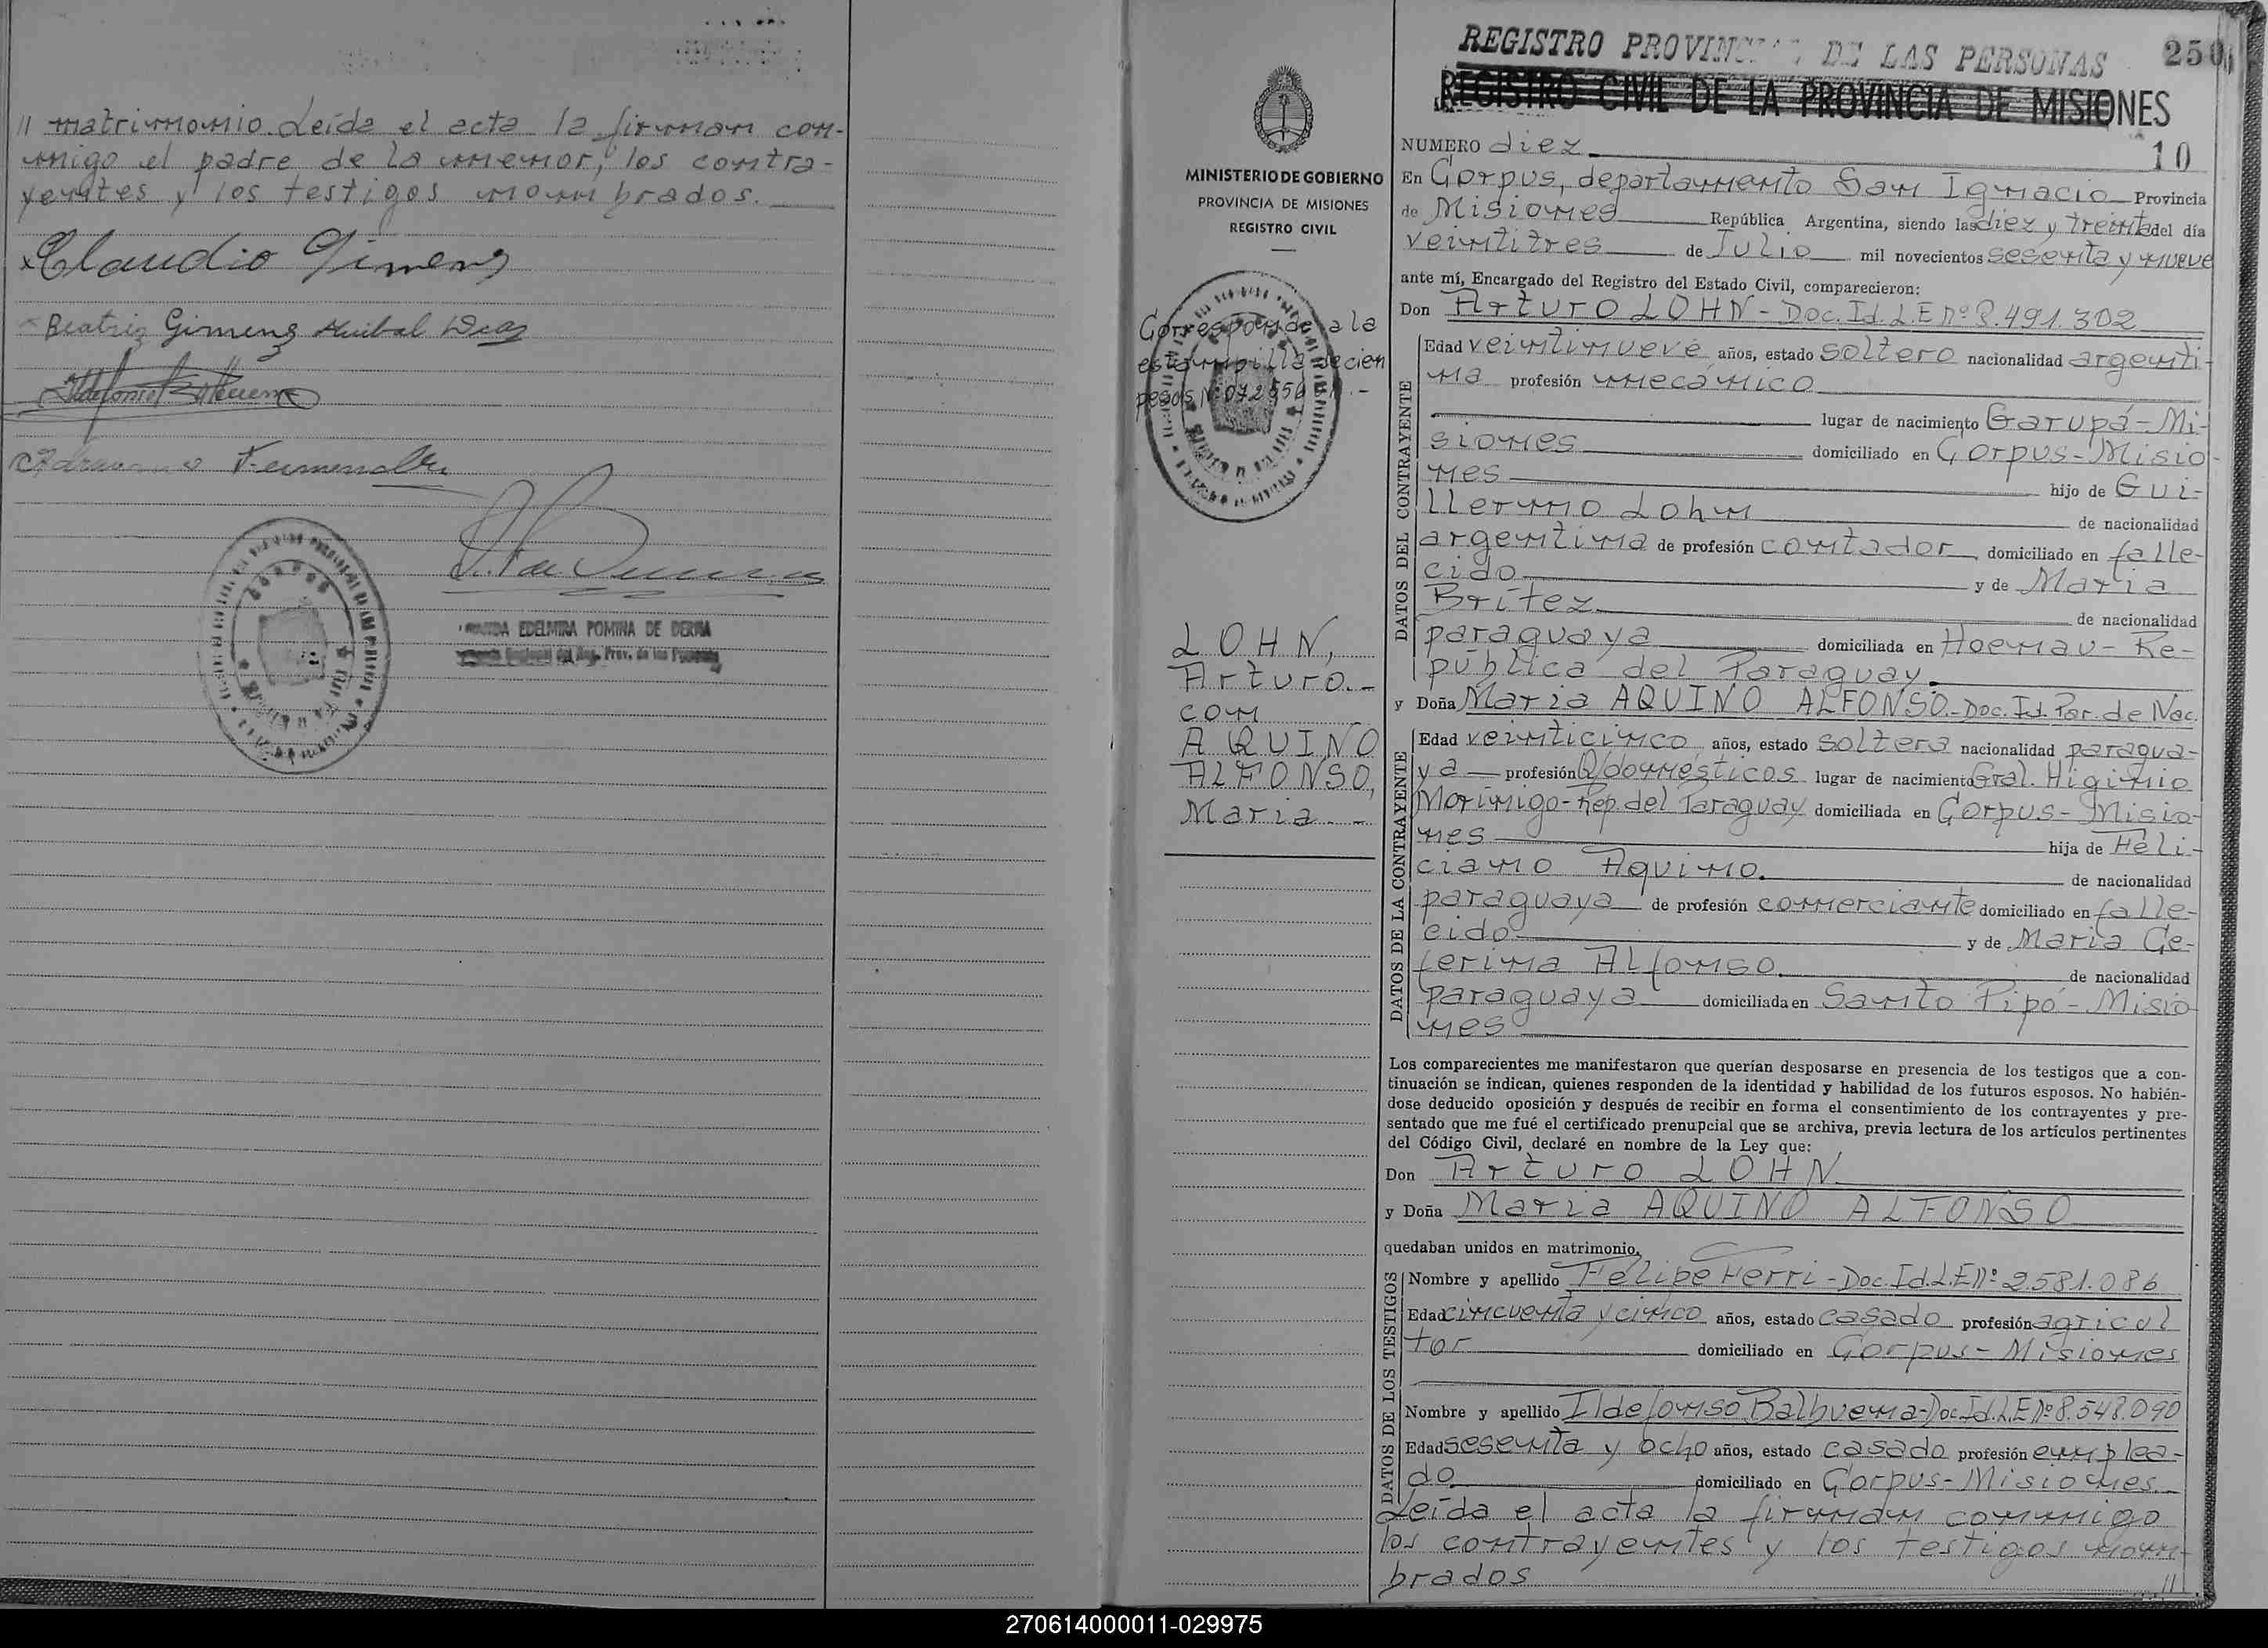 // matrimonio. Leída el acta la firman con-
migo el padre de la menor, los contra-
yentes y los testigos nombrados.
x Claudio Gimenz
Beatriz Gimenz Anibal Diaz
Ildefonso Balbuena
EDELMIRA POMINA DE DERNA
Reg. Prov. de las Personas
MINISTERIO DE GOBIERNO
PROVINCIA DE MISIONES
REGISTRO CIVIL
Corresponde a la
estampilla de cien
pesos Nº
LOHN,
Arturo.-
con
AQUINO
ALFONSO,
Maria.-
REGISTRO PROVINCIAL DE LAS PERSONAS 250
REGISTRO CIVIL DE LA PROVINCIA DE MISIONES
NUMERO diez 10
En Corpus, departamento San Ignacio Provincia
de Misiones República Argentina, siendo las diez y treinta del día
veintitres de Julio mil novecientos sesenta y nueve
ante mí, Encargado del Registro del Estado Civil, comparecieron:
Don Arturo LOHN - Doc. Id. L.E nº 8.491.302
DATOS DEL CONTRAYENTE
Edad veintinueve años, estado soltero nacionalidad argenti-
na profesión mecánico
lugar de nacimiento Garupá - Mi-
siones domiciliado en Corpus - Misio-
nes hijo de Gui-
llermo Lohn de nacionalidad
argentina de profesión contador domiciliado en falle-
cido y de Maria
Brítez de nacionalidad
paraguaya domiciliada en Hoenau - Re-
pública del Paraguay.
y Doña Maria AQUINO ALFONSO - Doc. Id. Par. de Nac.
DATOS DE LA CONTRAYENTE
Edad veinticinco años, estado soltera nacionalidad paragua-
ya profesión Q/domésticos lugar de nacimiento Gral. Higinio
Morinigo - Rep. del Paraguay domiciliada en Corpus - Misio-
nes hija de Feli-
ciano Aquino. de nacionalidad
paraguaya de profesión comerciante domiciliado en falle-
cido y de Maria Ce-
ferina Alfonso. de nacionalidad
paraguaya domiciliada en Santo Pipó - Misio
nes
Los comparecientes me manifestaron que querían desposarse en presencia de los testigos que a con-
tinuación se indican, quienes responden de la identidad y habilidad de los futuros esposos. No habién-
dose deducido oposición y después de recibir en forma el consentimiento de los contrayentes y pre-
sentado que me fué el certificado prenupcial que se archiva, previa lectura de los artículos pertinentes
del Código Civil, declaré en nombre de la Ley que:
Don Arturo LOHN
y Doña Maria AQUINO ALFONSO
quedaban unidos en matrimonio.
DATOS DE LOS TESTIGOS
Nombre y apellido Felipe Ferri - Doc. Id. L.E nº 2.581.086
Edad cincuenta y cinco años, estado casado profesión agricul
tor domiciliado en Corpus - Misiones
Nombre y apellido Ildefonso Balbuena - Doc. Id. L.E nº 8.548.090
Edad sesenta y ocho años, estado casado profesión emplea-
do domiciliado en Corpus - Misiones.
Leída el acta la firman conmigo
los contrayentes y los testigos nom-
brados //
270614000011-029975